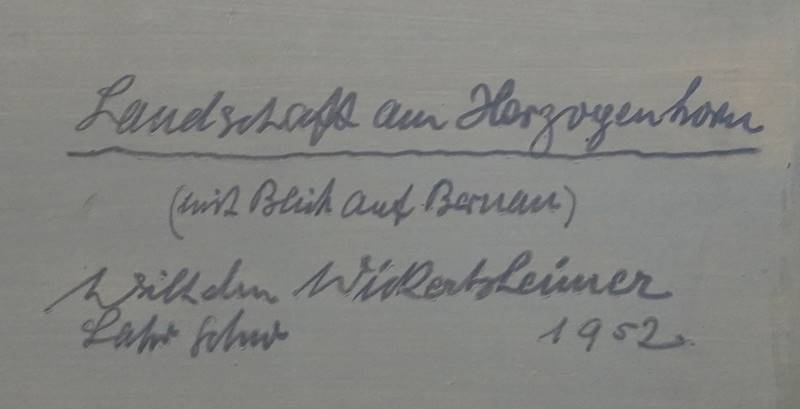 Landschaft am Herzogenhorn
(mit Blick auf Bernau)
Wilhelm Wickertsheimer
Lahr Schw 1952.